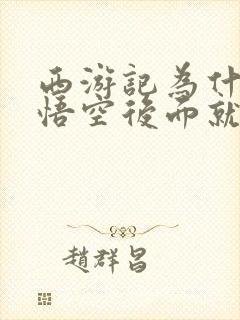 西游記為什
悟空後而就
趙群昌